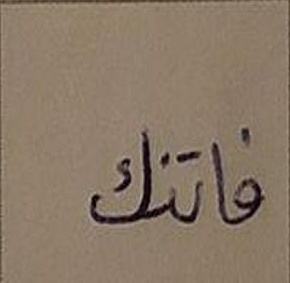 فاتنك